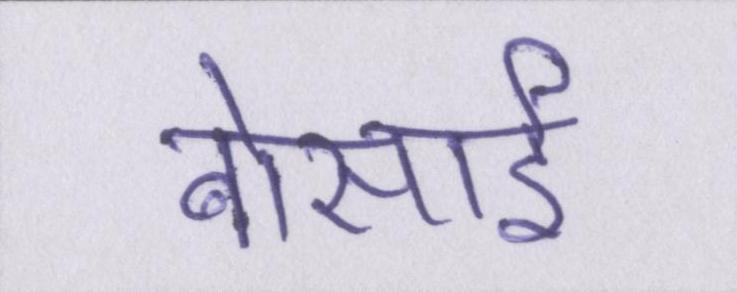 बोसाई